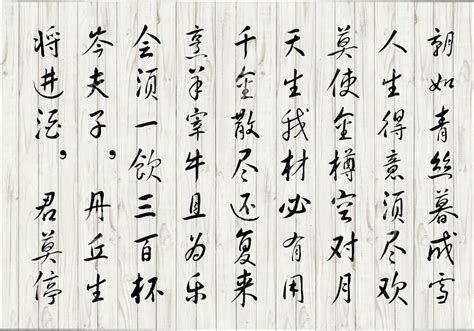 朝如青丝暮成雪
人生得意须尽欢
莫使金樽空对月
天生我材必有用
千金散尽还复来
烹羊宰牛且为乐
会须一飲三百杯
岑夫子，丹丘生
将进酒，君莫停